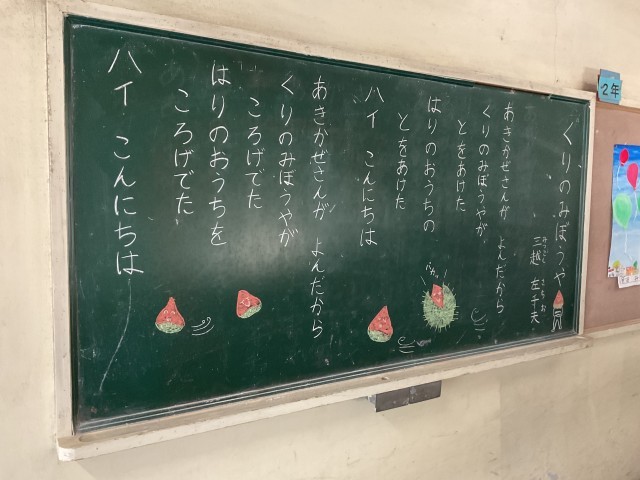 2年
くりのみぼうや
三越 左千夫
みつこし さちお
あきかぜさんが よんだから
くりのみぼうやが
とをあけた
はりのおうちの
とをあけた
ハイ こんにちは
あきかぜさんが よんだから
くりのみぼうやが
ころげでた
はりのおうちを
ころげでた
ハイ こんにちは